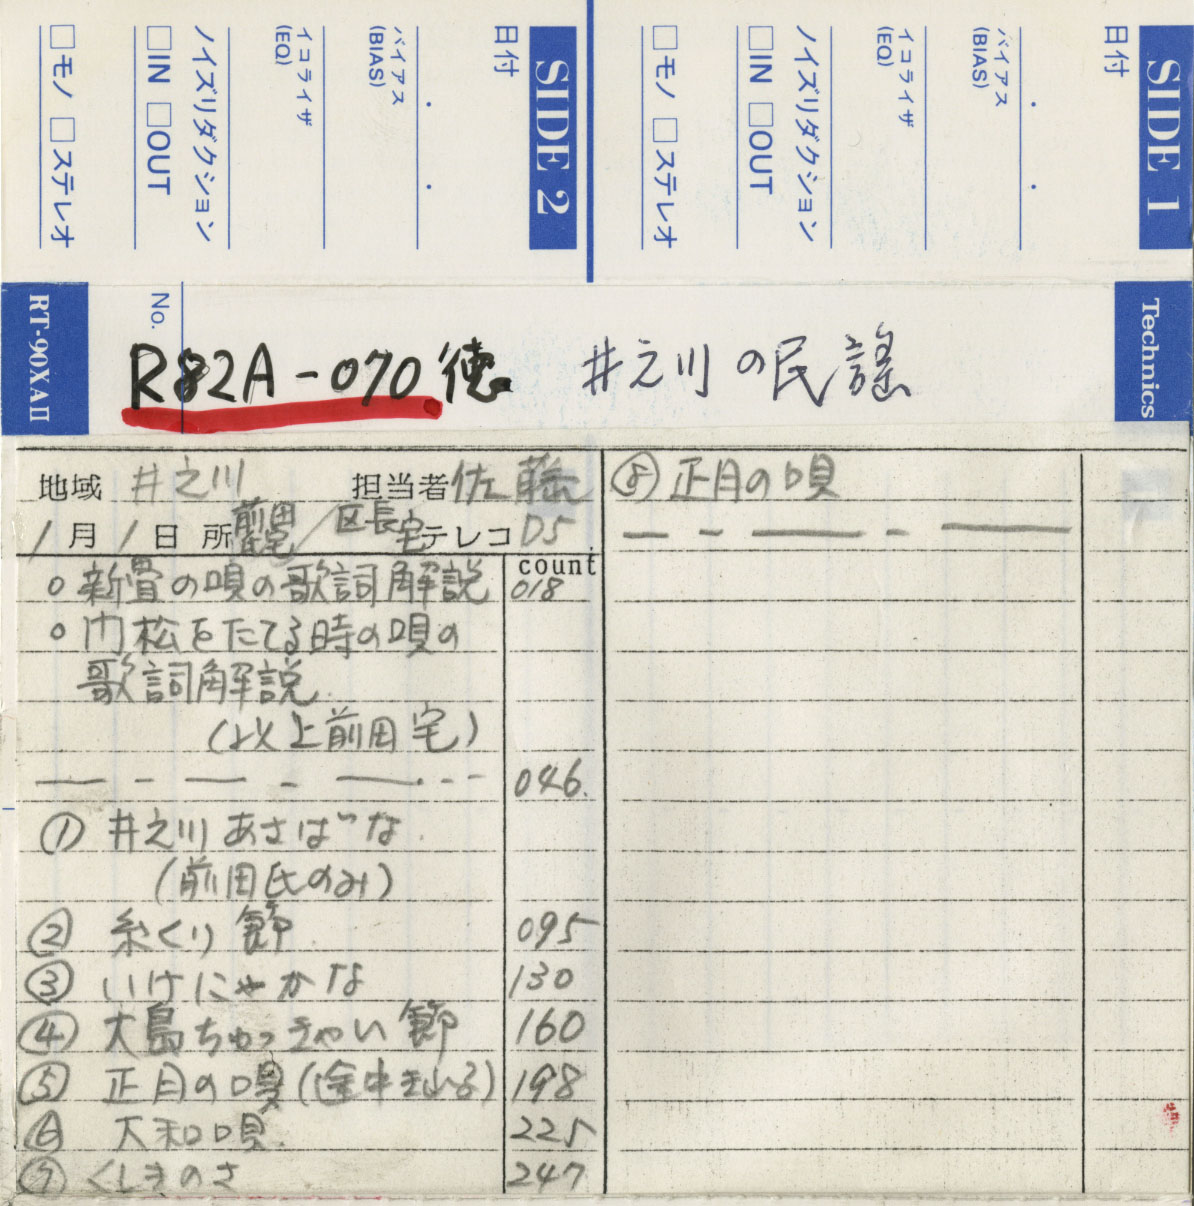 SIDE 1
日付
・ ・
バイアス
(BIAS)
イコライザ
(EQ)
ノイズリダクション
□IN □OUT
□モノ □ステレオ
SIDE 2
日付
・ ・
バイアス
(BIAS)
イコライザ
(EQ)
ノイズリダクション
□IN □OUT
□モノ □ステレオ
Technics
RT-90XAII
No.
R82A-070 徳 井之川の民謡
地域 井之川 担当者 佐藤
1月1日 所 前田氏宅/区長宅 テレコ D5
count
○新畳の唄の歌詞解説 018
○門松をたてる時の唄の
歌詞解説
(以上前田宅)
046.
① 井之川あさばな
(前田氏のみ)
② 糸くり節 095
③ いけにゃかな 130
④ 大島ちゅっきゃい節 160
⑤ 正月の唄(途中きれる) 198
⑥ 大和唄 225
⑦ くしきのさ 247
⑧ 正月の唄